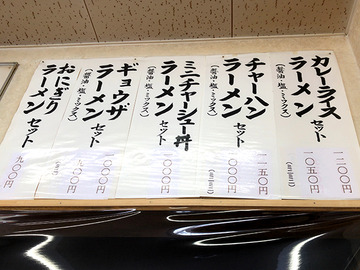 カレーライス
ラーメン セット
(醤油・塩・ミックス)
一二〇〇円
一〇五〇円
チャーハン
ラーメン セット
(醤油・塩・ミックス)
一一五〇円
一〇〇〇円
ミニチャーシュー丼
ラーメン セット
(醤油・塩・ミックス)
一〇〇〇円
ギョウザ
ラーメン セット
(醤油・塩・ミックス)
おにぎり
ラーメン セット
九〇〇円